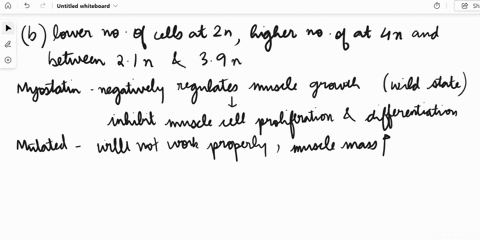 Untitled whiteboard
(b) lower no. of cells at 2n, higher no. of at 4n and
between 2.1n & 3.9n
Myostatin - negatively regulates muscle growth (wild state)
↓
inhibit muscle cell proliferation & differentiation
Mutated - will not work properly, muscle mass ↑